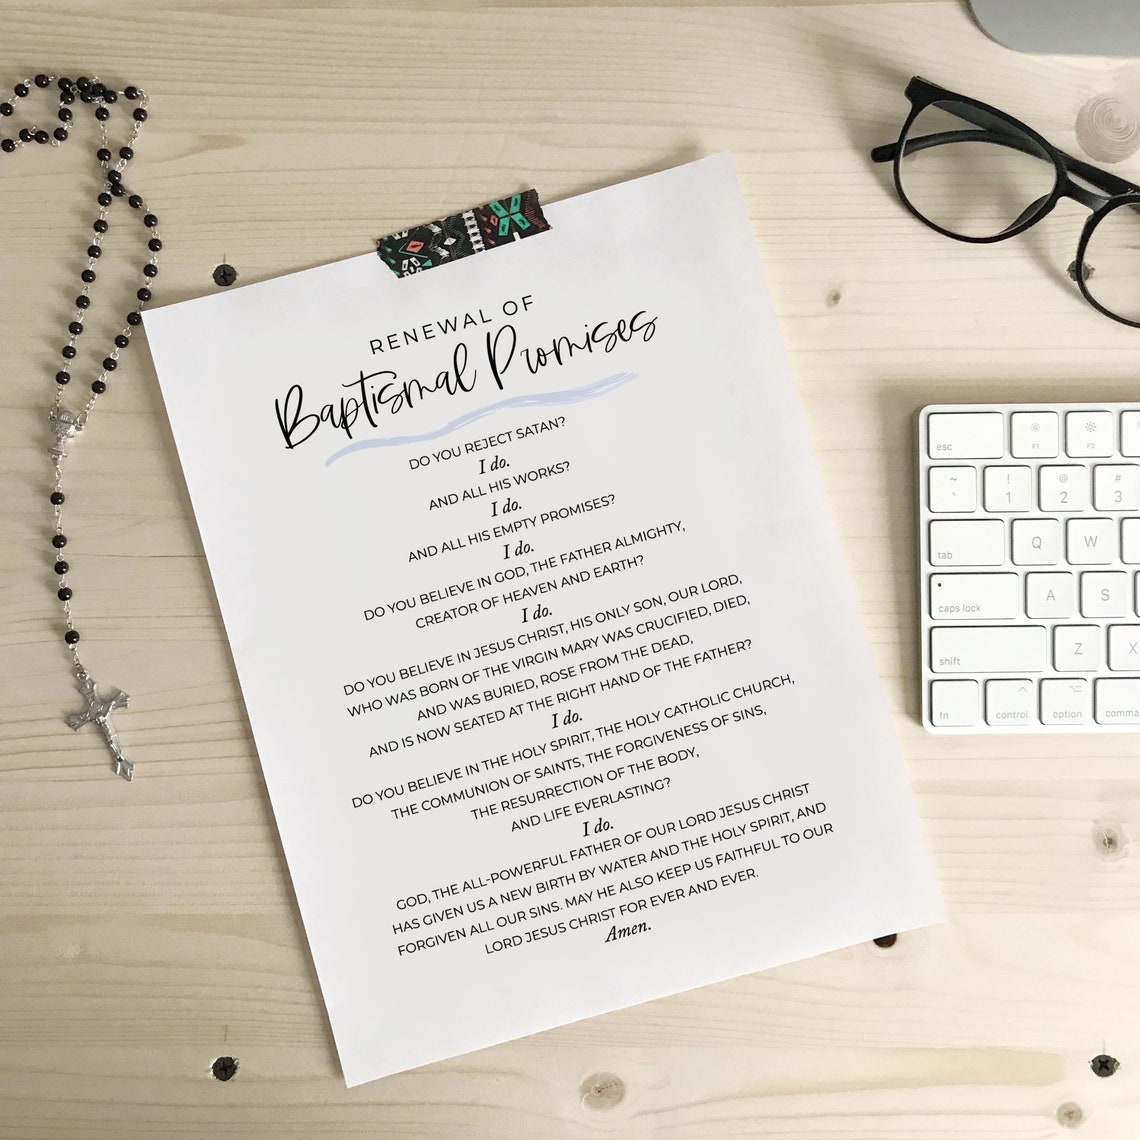 RENEWAL OF
Baptismal Promises
DO YOU REJECT SATAN?
I do.
AND ALL HIS WORKS?
I do.
AND ALL HIS EMPTY PROMISES?
I do.
DO YOU BELIEVE IN GOD, THE FATHER ALMIGHTY,
CREATOR OF HEAVEN AND EARTH?
I do.
DO YOU BELIEVE IN JESUS CHRIST, HIS ONLY SON, OUR LORD,
WHO WAS BORN OF THE VIRGIN MARY WAS CRUCIFIED, DIED,
AND WAS BURIED, ROSE FROM THE DEAD,
AND IS NOW SEATED AT THE RIGHT HAND OF THE FATHER?
I do.
DO YOU BELIEVE IN THE HOLY SPIRIT, THE HOLY CATHOLIC CHURCH,
THE COMMUNION OF SAINTS, THE FORGIVENESS OF SINS,
THE RESURRECTION OF THE BODY,
AND LIFE EVERLASTING?
I do.
GOD, THE ALL-POWERFUL FATHER OF OUR LORD JESUS CHRIST
HAS GIVEN US A NEW BIRTH BY WATER AND THE HOLY SPIRIT, AND
FORGIVEN ALL OUR SINS. MAY HE ALSO KEEP US FAITHFUL TO OUR
LORD JESUS CHRIST FOR EVER AND EVER.
Amen.
esc F1 F2
~ ` ! 1 @ 2 # 3
tab Q W
caps lock A S
shift Z X
fn control option comma